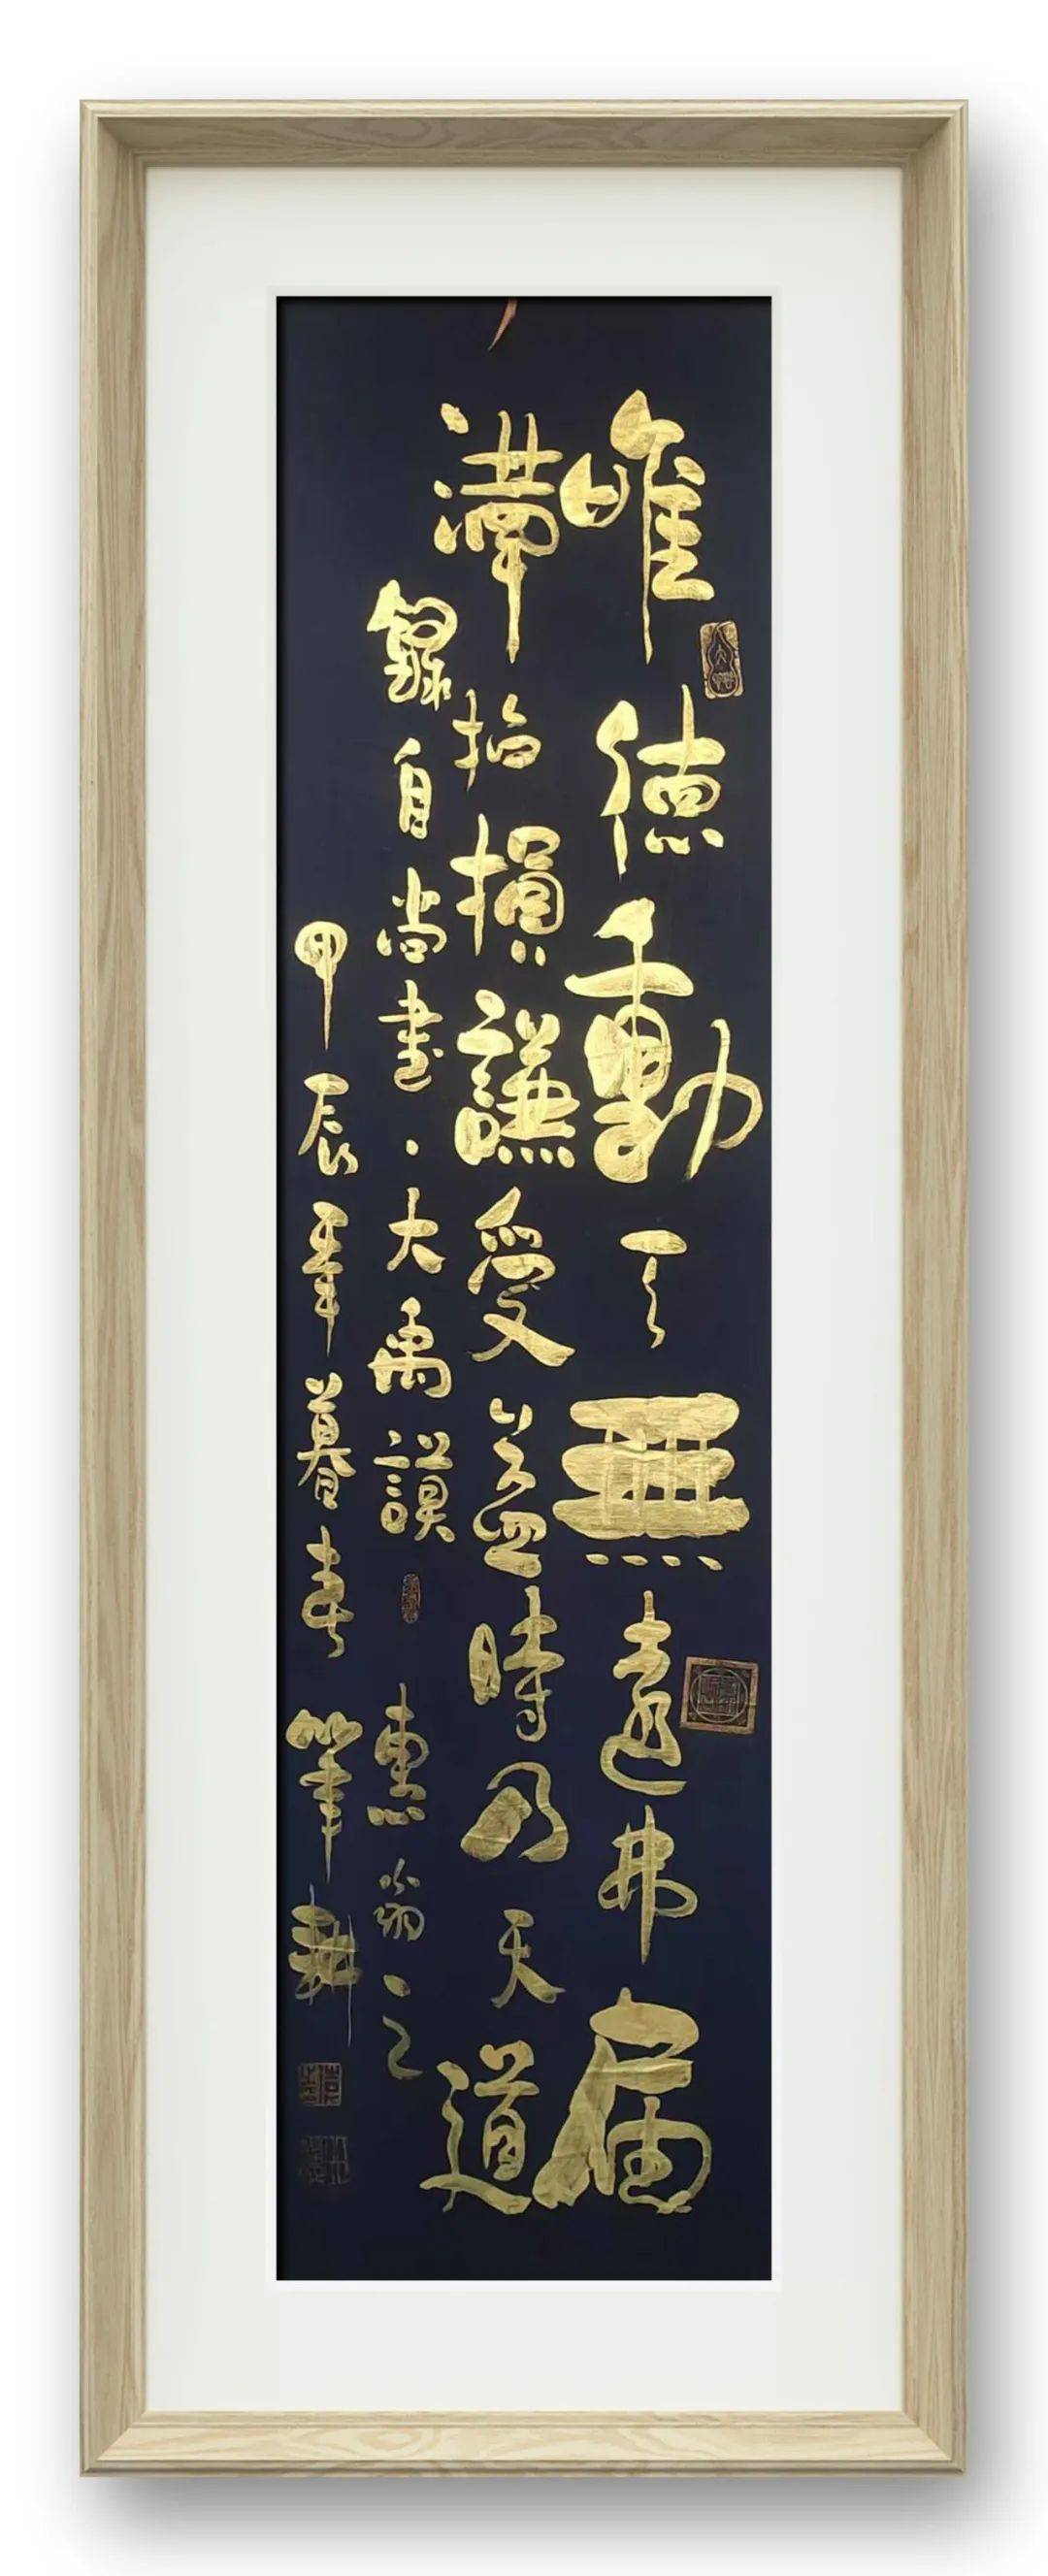 唯德動天無遠弗届
滿招損謙受益時乃天道
錄自尚書·大禹謨 惠翁之
甲辰年暮春 筆耕